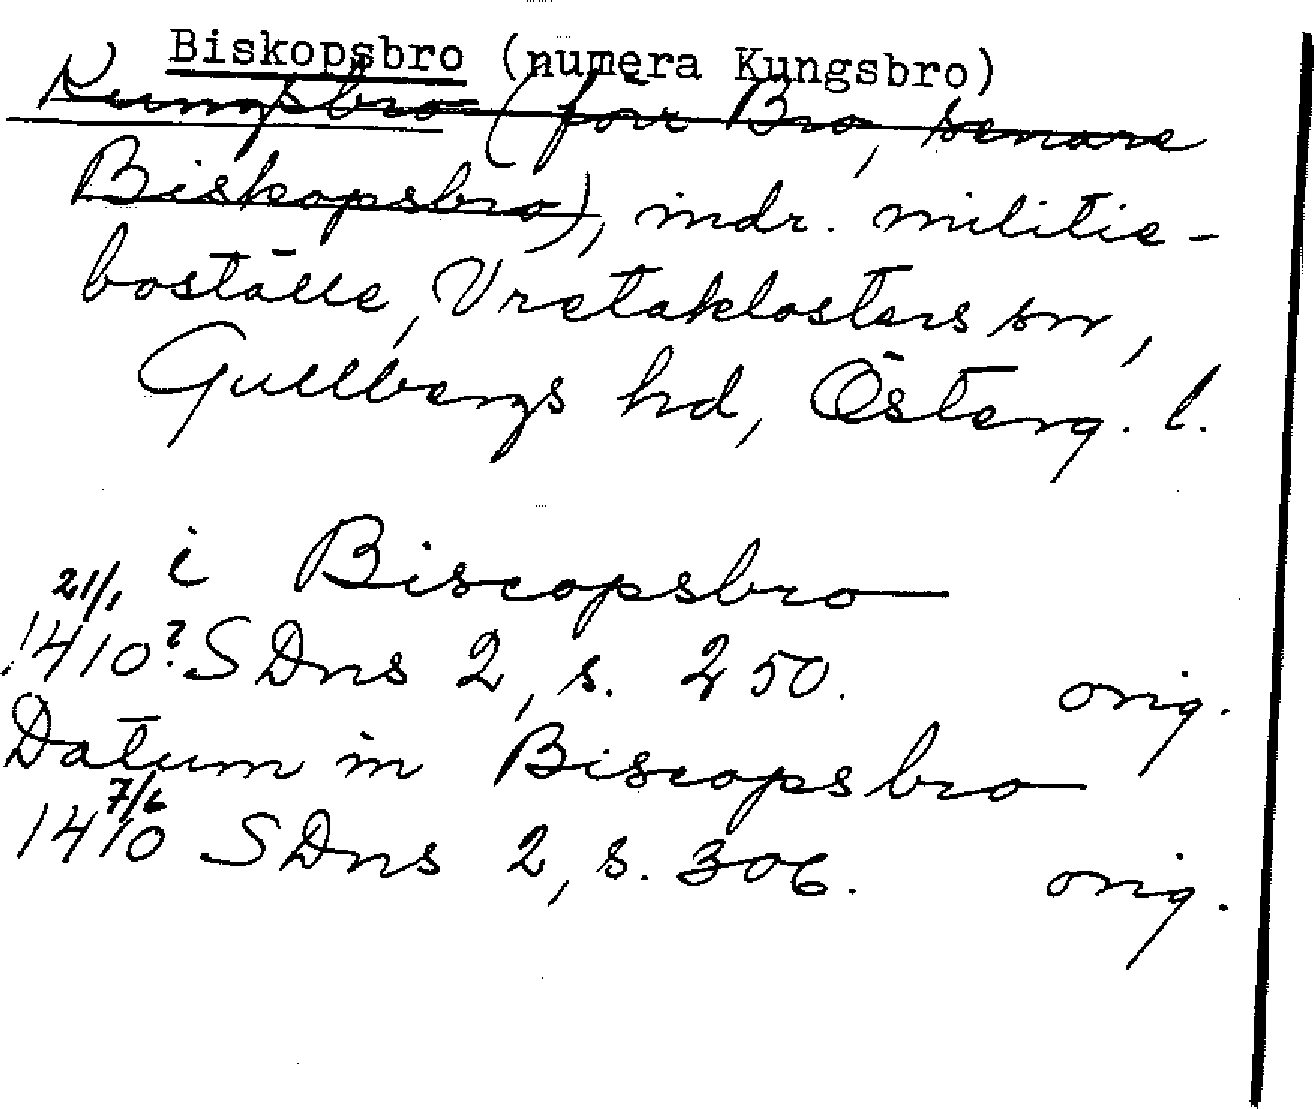 Biskopsbro (numera Kungsbro)
Kungsbro (förr Bro, senare
Biskopsbro), indr. militie-
boställe, Vretaklosters sn,
Gullbergs hd, Österg. l.
i Biscopsbro
21/1 1410? SDns 2, s. 250. orig.
Datum in Biscopsbro
7/6 1410 SDns 2, s. 306. orig.